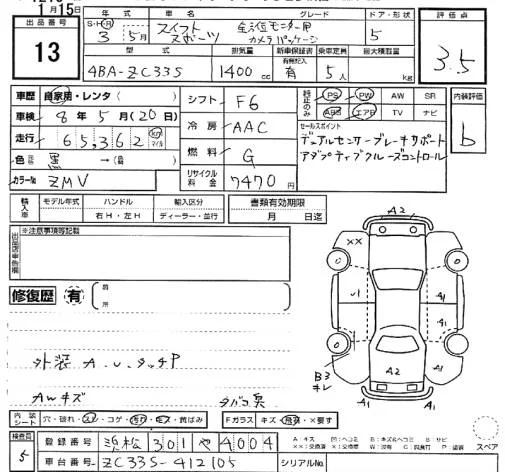 1月15日
出品番号 13
年式 S・H・R 3年5月
車名 スイフトスポーツ
グレード 全方位モニター用カメラパッケージ
ドア・形状 5
評価点 3.5
型式 4BA-ZC33S
排気量 1400cc
新車保証書 有無記入 有
乗車定員 5人
最大積載量 kg
車歴 自家用・レンタ( )
車検 8年5月(20日)
走行 65,362 km マイル
色 元色 黒 →(色替)
カラーNo ZMV
シフト F6
冷房 AAC
燃料 G
リサイクル料金 7470円
純正のみ PS PW AW SR
ABS エアB TV ナビ
内装評価 b
セールスポイント
デュアルセンサーブレーキサポート
アダプティブクルーズコントロール
輸入車 モデル年式 ハンドル 輸入区分
右H・左H ディーラー・並行
書類有効期限
月 日迄
※注意事項等記載
修復歴 有 箇所
A2
XX
U1
A1
A1
B3
キレ
A2
A1
A1
外装 A.U.タッチP
AWキズ
タバコ臭
内装シート 穴・破れ・スレ・コゲ・汚れ・モス・黄ばみ
Fガラス キズ・飛石・×要す
検査員 5
登録番号 浜松 301 や 4004
車台番号 ZC33S-412105
シリアルNo.
スペア